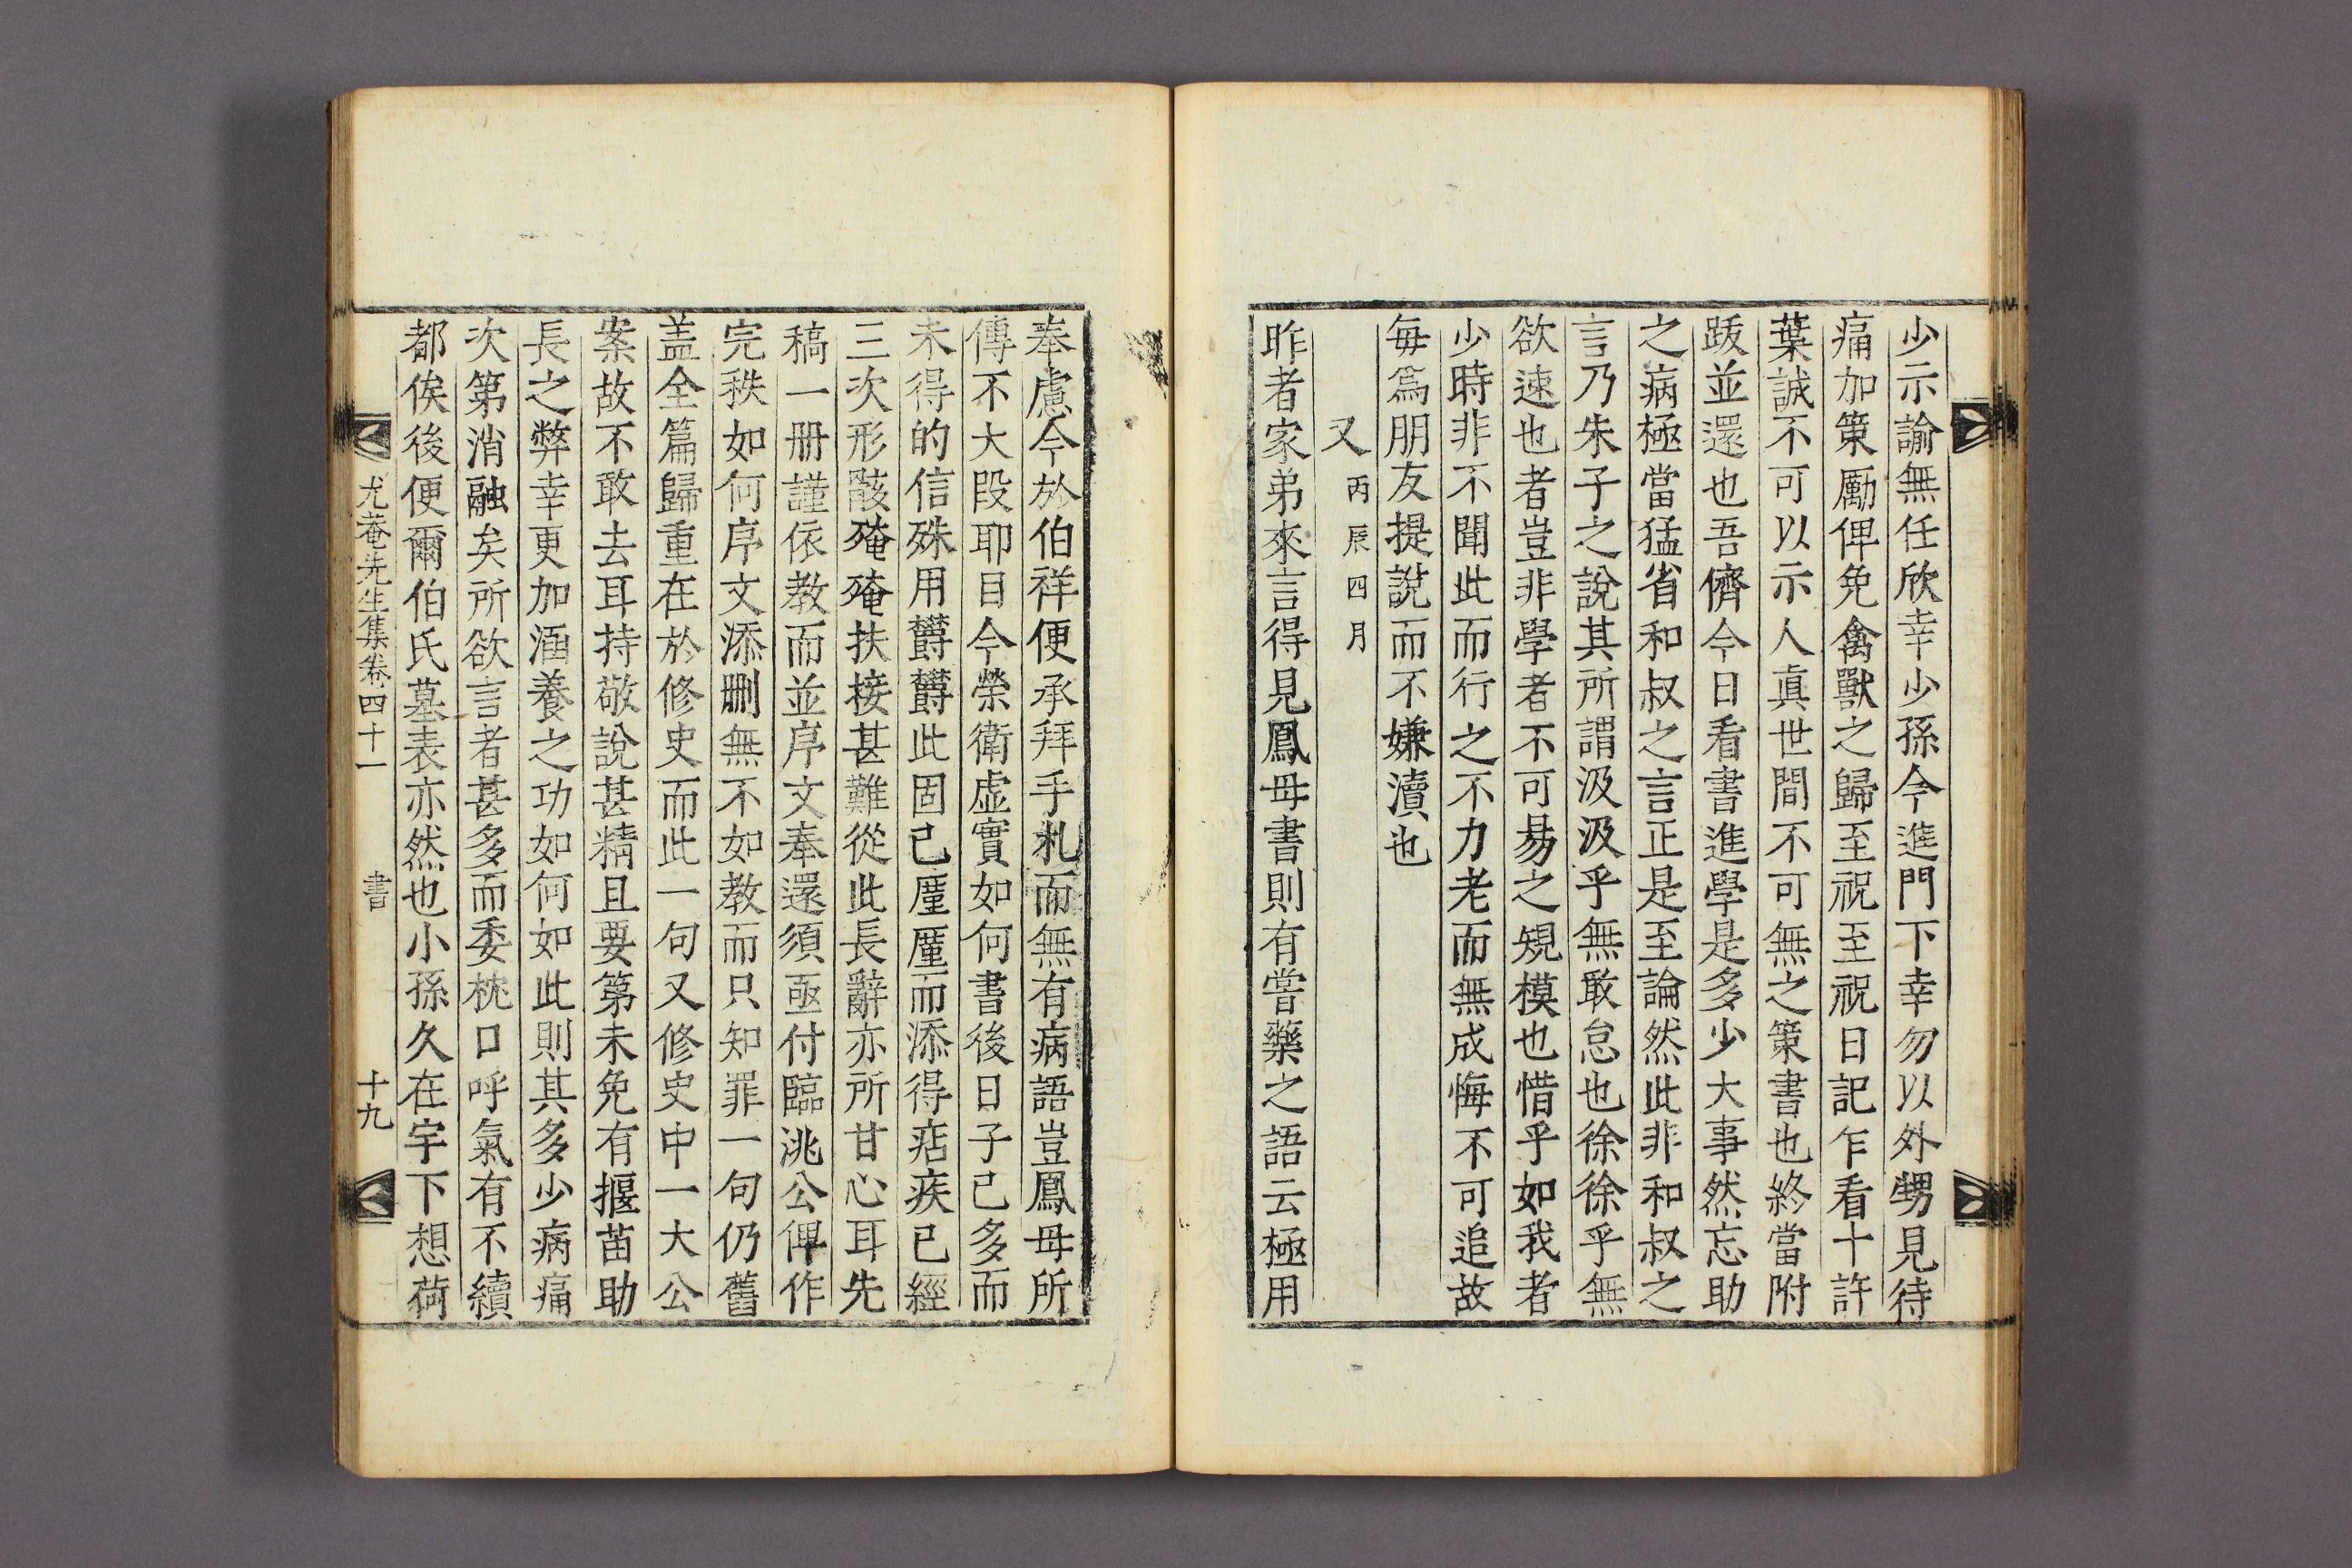 少示諭無任欣幸少孫今進門下幸勿以外甥見待
痛加策勵俾免禽獸之歸至祝至祝日記乍看十許
葉誠不可以示人眞世間不可無之策書也終當附
跋並還也吾儕今日看書進學是多少大事然忘助
之病極當猛省和叔之言正是至論然此非和叔之
言乃朱子之說其所謂汲汲乎無敢怠也徐徐乎無
欲速也者豈非學者不可易之䂓模也惜乎如我者
少時非不聞此而行之不力老而無成悔不可追故
每爲朋友提說而不嫌瀆也
又 丙辰四月
昨者家弟來言得見鳳母書則有嘗藥之語云極用
奉慮今於伯祥便承拜手札而無有病語豈鳳母所
傳不大段耶目今榮衛虛實如何書後日子已多而
未得的信殊用欝欝此固已㕓㕓而添得痁疾已經
三次形骸殗殗扶接甚難從此長辭亦所甘心耳先
稿一册謹依教而並序文奉還須亟付臨洮公俾作
完秩如何序文添刪無不如教而只知罪一句仍舊
盖全篇歸重在於修史而此一句又修史中一大公
案故不敢去耳持敬說甚精且要第未免有揠苗助
長之弊幸更加涵養之功如何如此則其多少病痛
次第消融矣所欲言者甚多而委枕口呼氣有不續
都俟後便爾伯氏墓表亦然也小孫久在宇下想荷
尤菴先生集卷四十一 書 十九